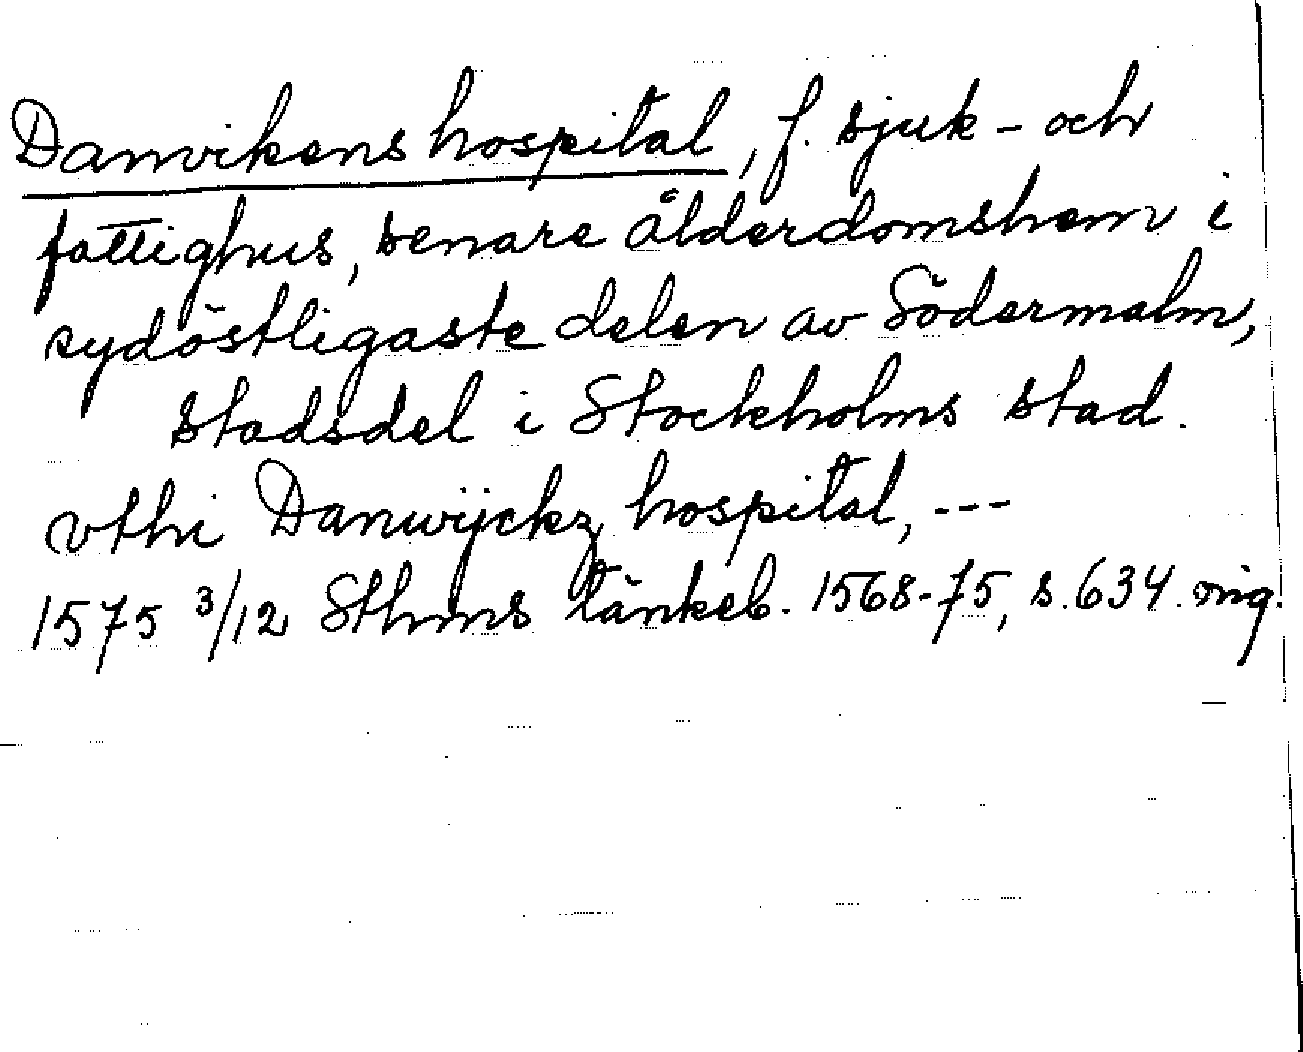 Danvikens hospital, f. sjuk- och
fattighus, senare ålderdomshem i
sydöstligaste delen av Södermalm,
stadsdel i Stockholms stad.
vthi Danwijckz hospital, ---
1575 3/12 Sthms tänkeb. 1568-75, s. 634. orig.